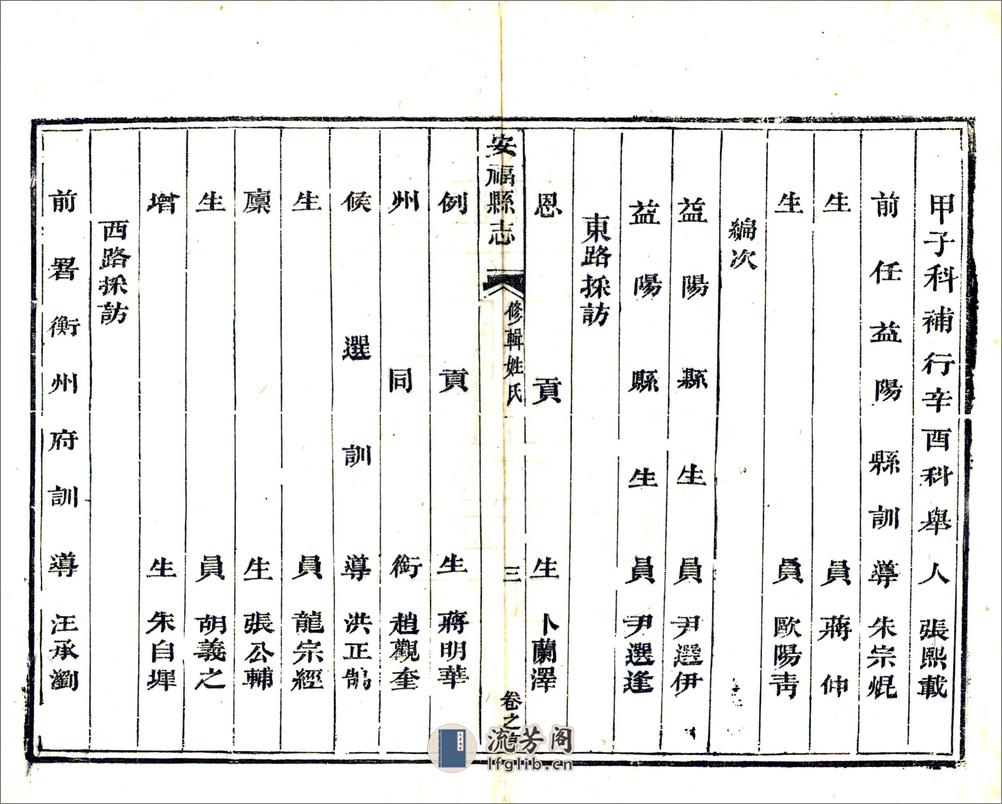 甲子科補行辛酉科舉人張熙載
前任益陽縣訓導朱宗焜
生員蔣伸
生員歐陽青
編次
益陽縣生員尹選伊
益陽縣生員尹選逢
東路採訪
恩貢生卜蘭澤
安福縣志
修輯姓氏
三
卷之
例貢生蔣明華
州同銜趙觀奎
候選訓導洪正鵠
生員龍宗經
廩生張公輔
生員胡義之
增生朱自墀
西路採訪
前署衡州府訓導汪承瀏
流芳阁
lfglib.cn